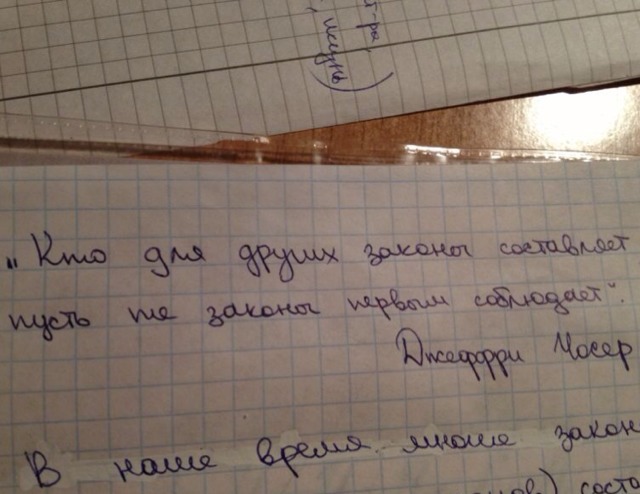 жизнь)
„Кто для других законы составляет
пусть те законы первым соблюдает".
Джеффри Чосер
В наше время многие закон